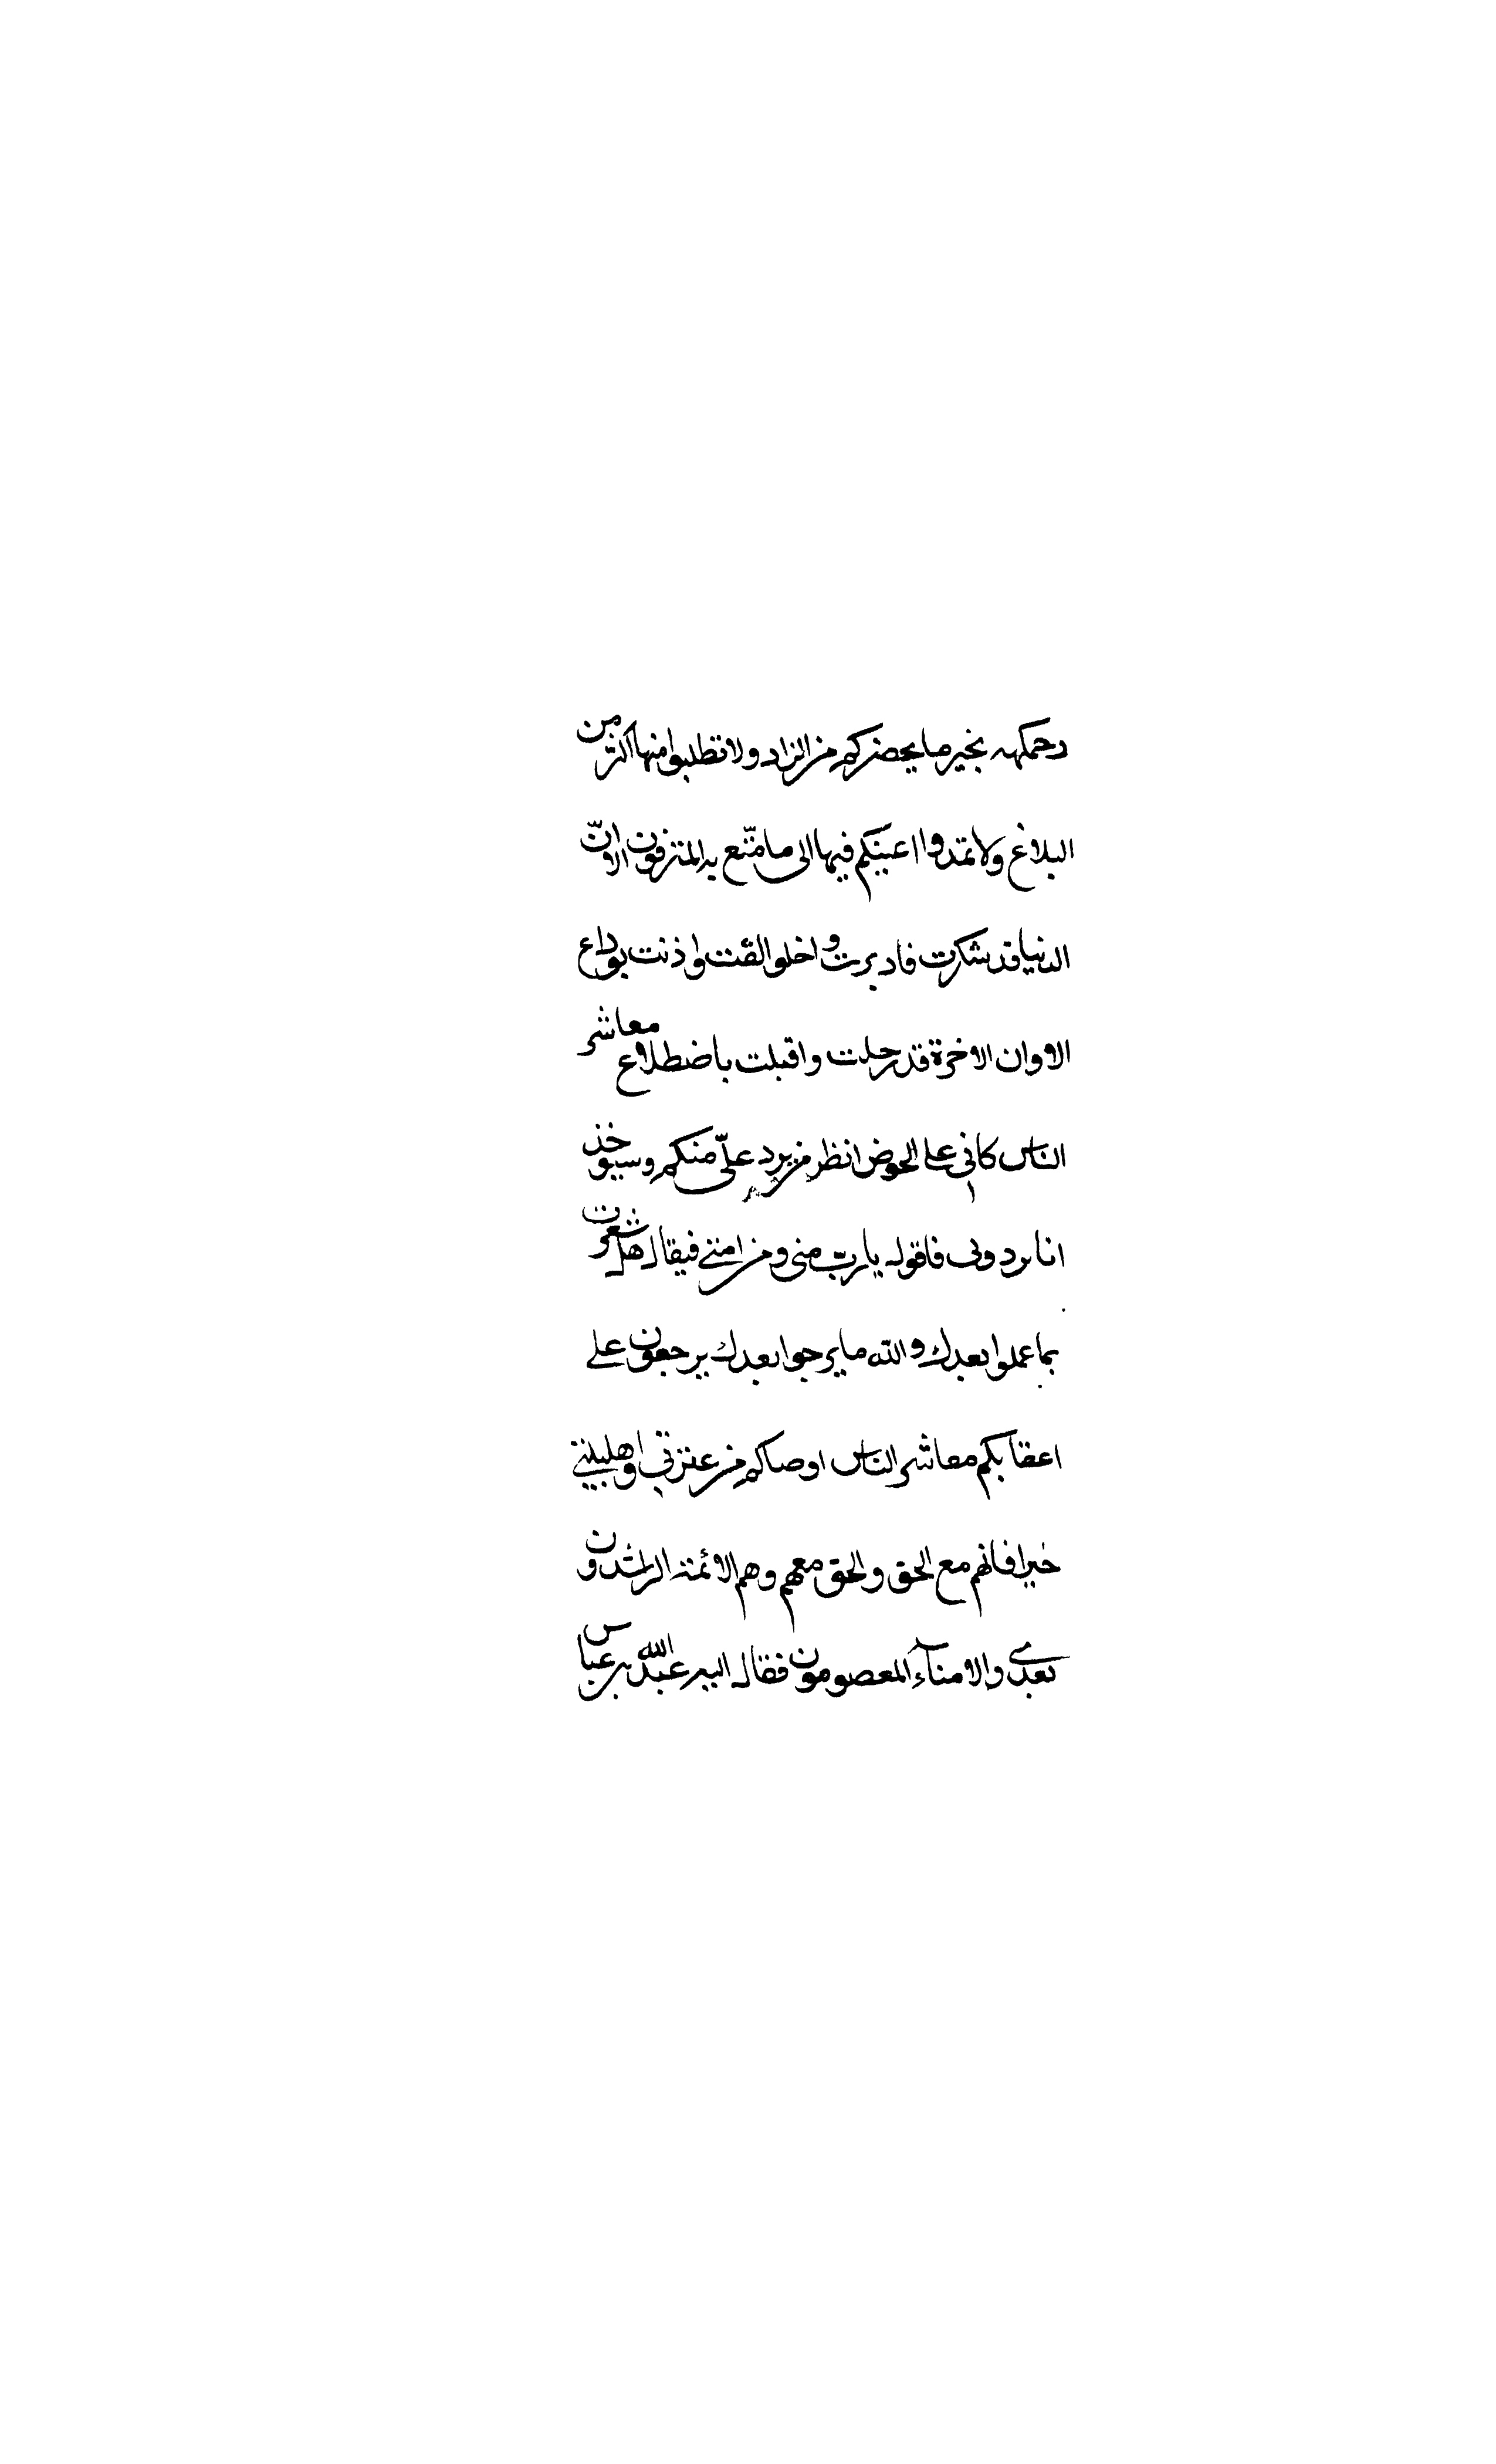 رحمكم بخير ما يحضركم من الزاد ولا تطلبوا منها اكثر من
البلاغ ولا تمدوا اعينكم فيها الى ما متّع به المترفون الا انّ
الدنيا قد شكرت فادبرت و اخلوالقت واذنت بوداع
الا وان الاخرة قد رحلت واقبلت باضطلاع معاشر
الناس كانى على الحوض انظر من يرد علىّ منكم وسيوخذ
اناس دونى فاقول يا ربّ منى ومن امتى فيقال هل شعرت
بما عملوا بعدك والله ما برحوا بعدك يرجعون على
اعقابكم معاشر الناس اوصاكم من عترتى واهلبيتى
خيرا فانهم مع الحق والحق معهم وهم الائمة الراشدون
بعدى والامنآء المعصومون فقال اليه عبد الله بن عباس